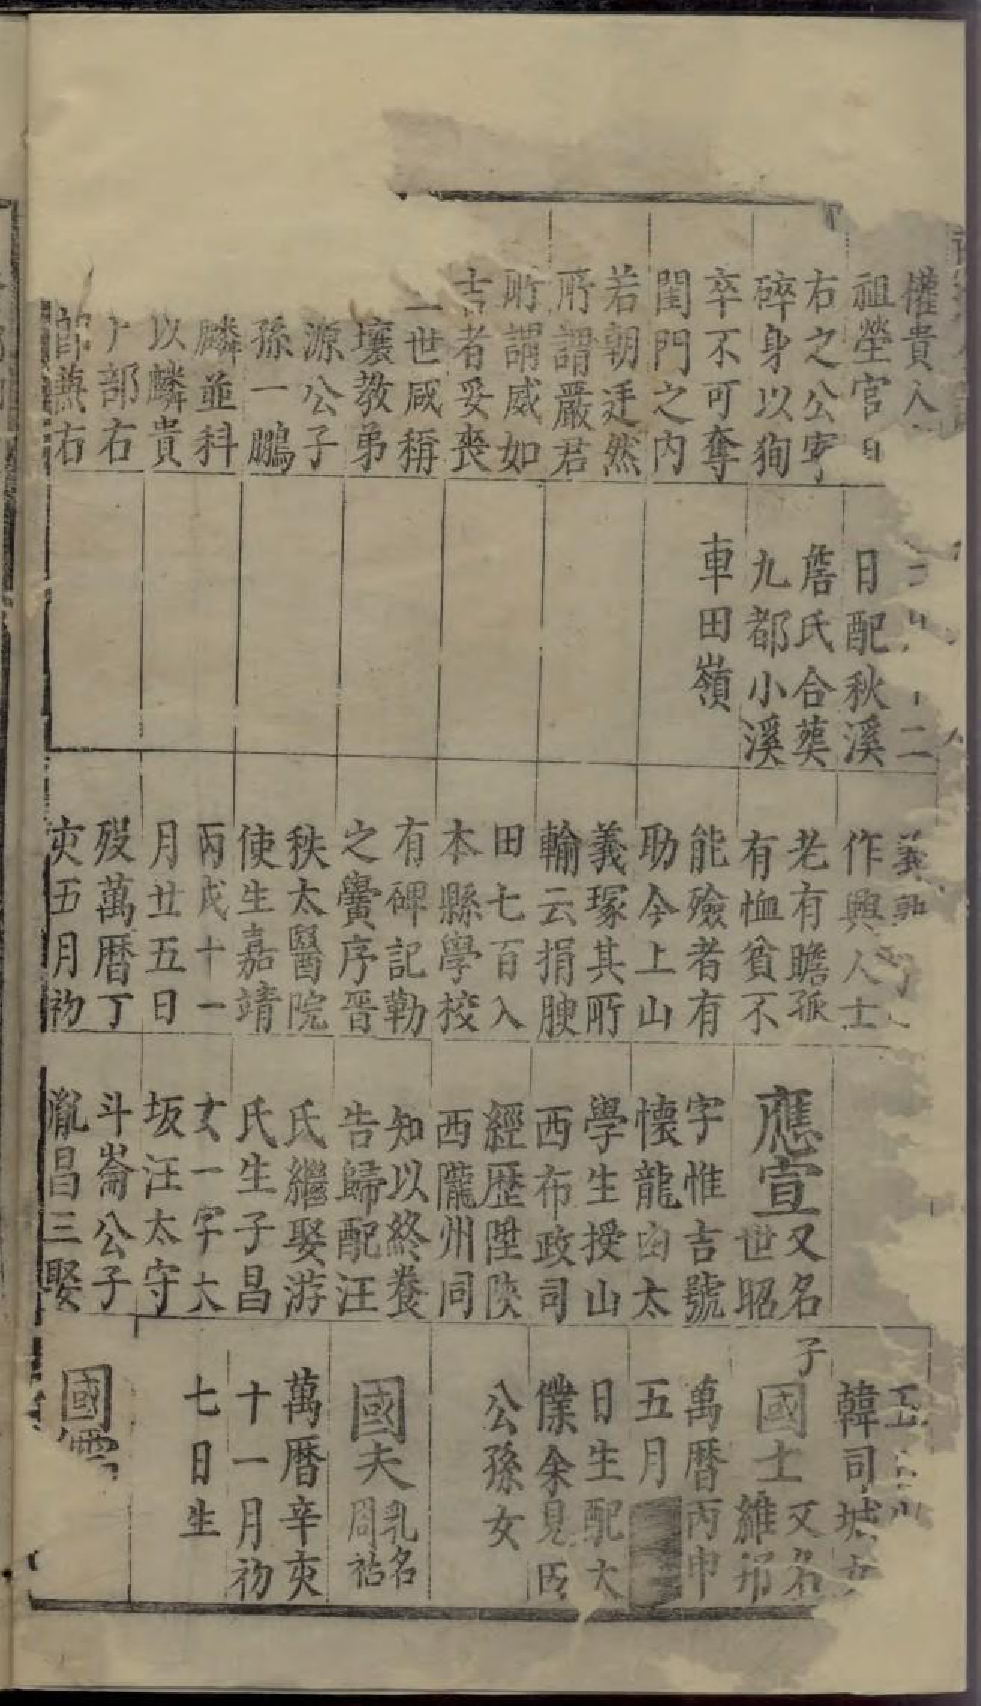 權貴入
祖塋官
右之公寧
碎身以狥
卒不可奪
閨門之内
若朝廷然
所謂嚴君
所謂威如
吉者妥喪
二世咸稱
壤教弟
源公子
孫一鵬
麟並科
以麟貴
部右
郎兼右
二
日配秋溪
詹氏合葬
九都小溪
車田嶺
義
作興人士
老有瞻孤
有恤貧不
能殮者有
助今上山
義塚其所
輸云捐腴
田七百入
本縣學校
有碑記勒
之黌序晉
秩太醫院
使生嘉靖
丙戌十一
月廿五日
歿萬曆丁
亥五月初
應宣又名
世昭
字惟吉號
懷龍由太
學生授山
西布政司
經歴陞陝
西隴州同
知以終養
告歸配汪
氏繼娶游
氏生子昌
女一字大
坂汪太守
斗崙公子
胤昌三娶
韓司城女
子
國士又名
維邦
萬曆丙申
五月
日生配大
僕余見田
公孫女
國夫乳名
周祐
萬曆辛亥
十一月初
七日生
國